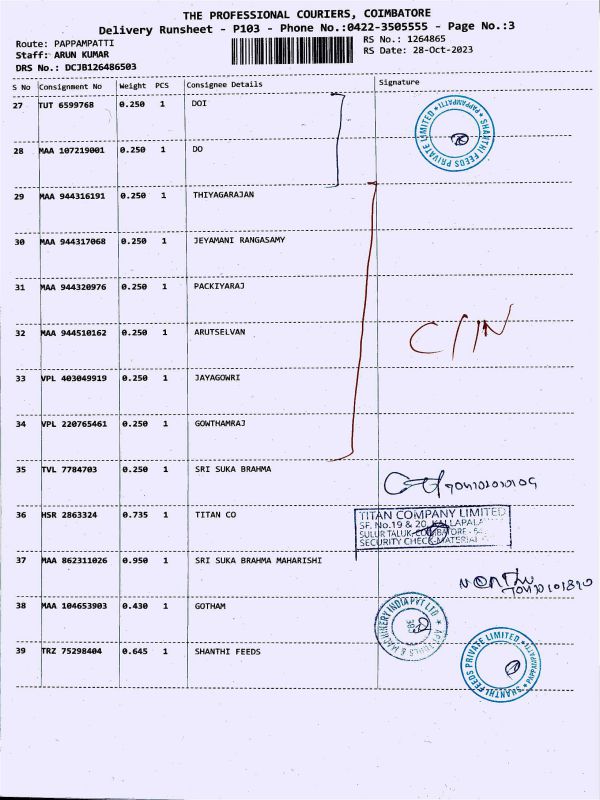 THE PROFESSIONAL COURIERS, COIMBATORE
Delivery Runsheet - P103 - Phone No.:0422-3505555 - Page No.:3
Route: PAPPAMPATTI
RS No.: 1264865
Staff: ARUN KUMAR
RS Date: 28-Oct-2023
DRS No.: DCJB126486503
S No Consignment No Weight PCS Consignee Details Signature
27 TUT 6599768 0.250 1 DOI
SHANTHI FEEDS PRIVATE LIMITED * PAPPAMPATTI *
28 MAA 107219001 0.250 1 DO
29 MAA 944316191 0.250 1 THIYAGARAJAN
30 MAA 944317068 0.250 1 JEYAMANI RANGASAMY
31 MAA 944320976 0.250 1 PACKIYARAJ
32 MAA 944510162 0.250 1 ARUTSELVAN
C/IN
33 VPL 403049919 0.250 1 JAYAGOWRI
34 VPL 220765461 0.250 1 GOWTHAMRAJ
35 TVL 7784703 0.250 1 SRI SUKA BRAHMA
36 HSR 2863324 0.735 1 TITAN CO
TITAN COMPANY LIMITED
SF. No.19 & 20,
SULUR TALUK,
SECURITY CHECK-MATERIAL
37 MAA 862311026 0.950 1 SRI SUKA BRAHMA MAHARISHI
38 MAA 104653903 0.430 1 GOTHAM
& MACHINERY INDIA PVT LTD
CBE
39 TRZ 75298404 0.645 1 SHANTHI FEEDS
SHANTHI FEEDS PRIVATE LIMITED * PAPPAMPATTI *